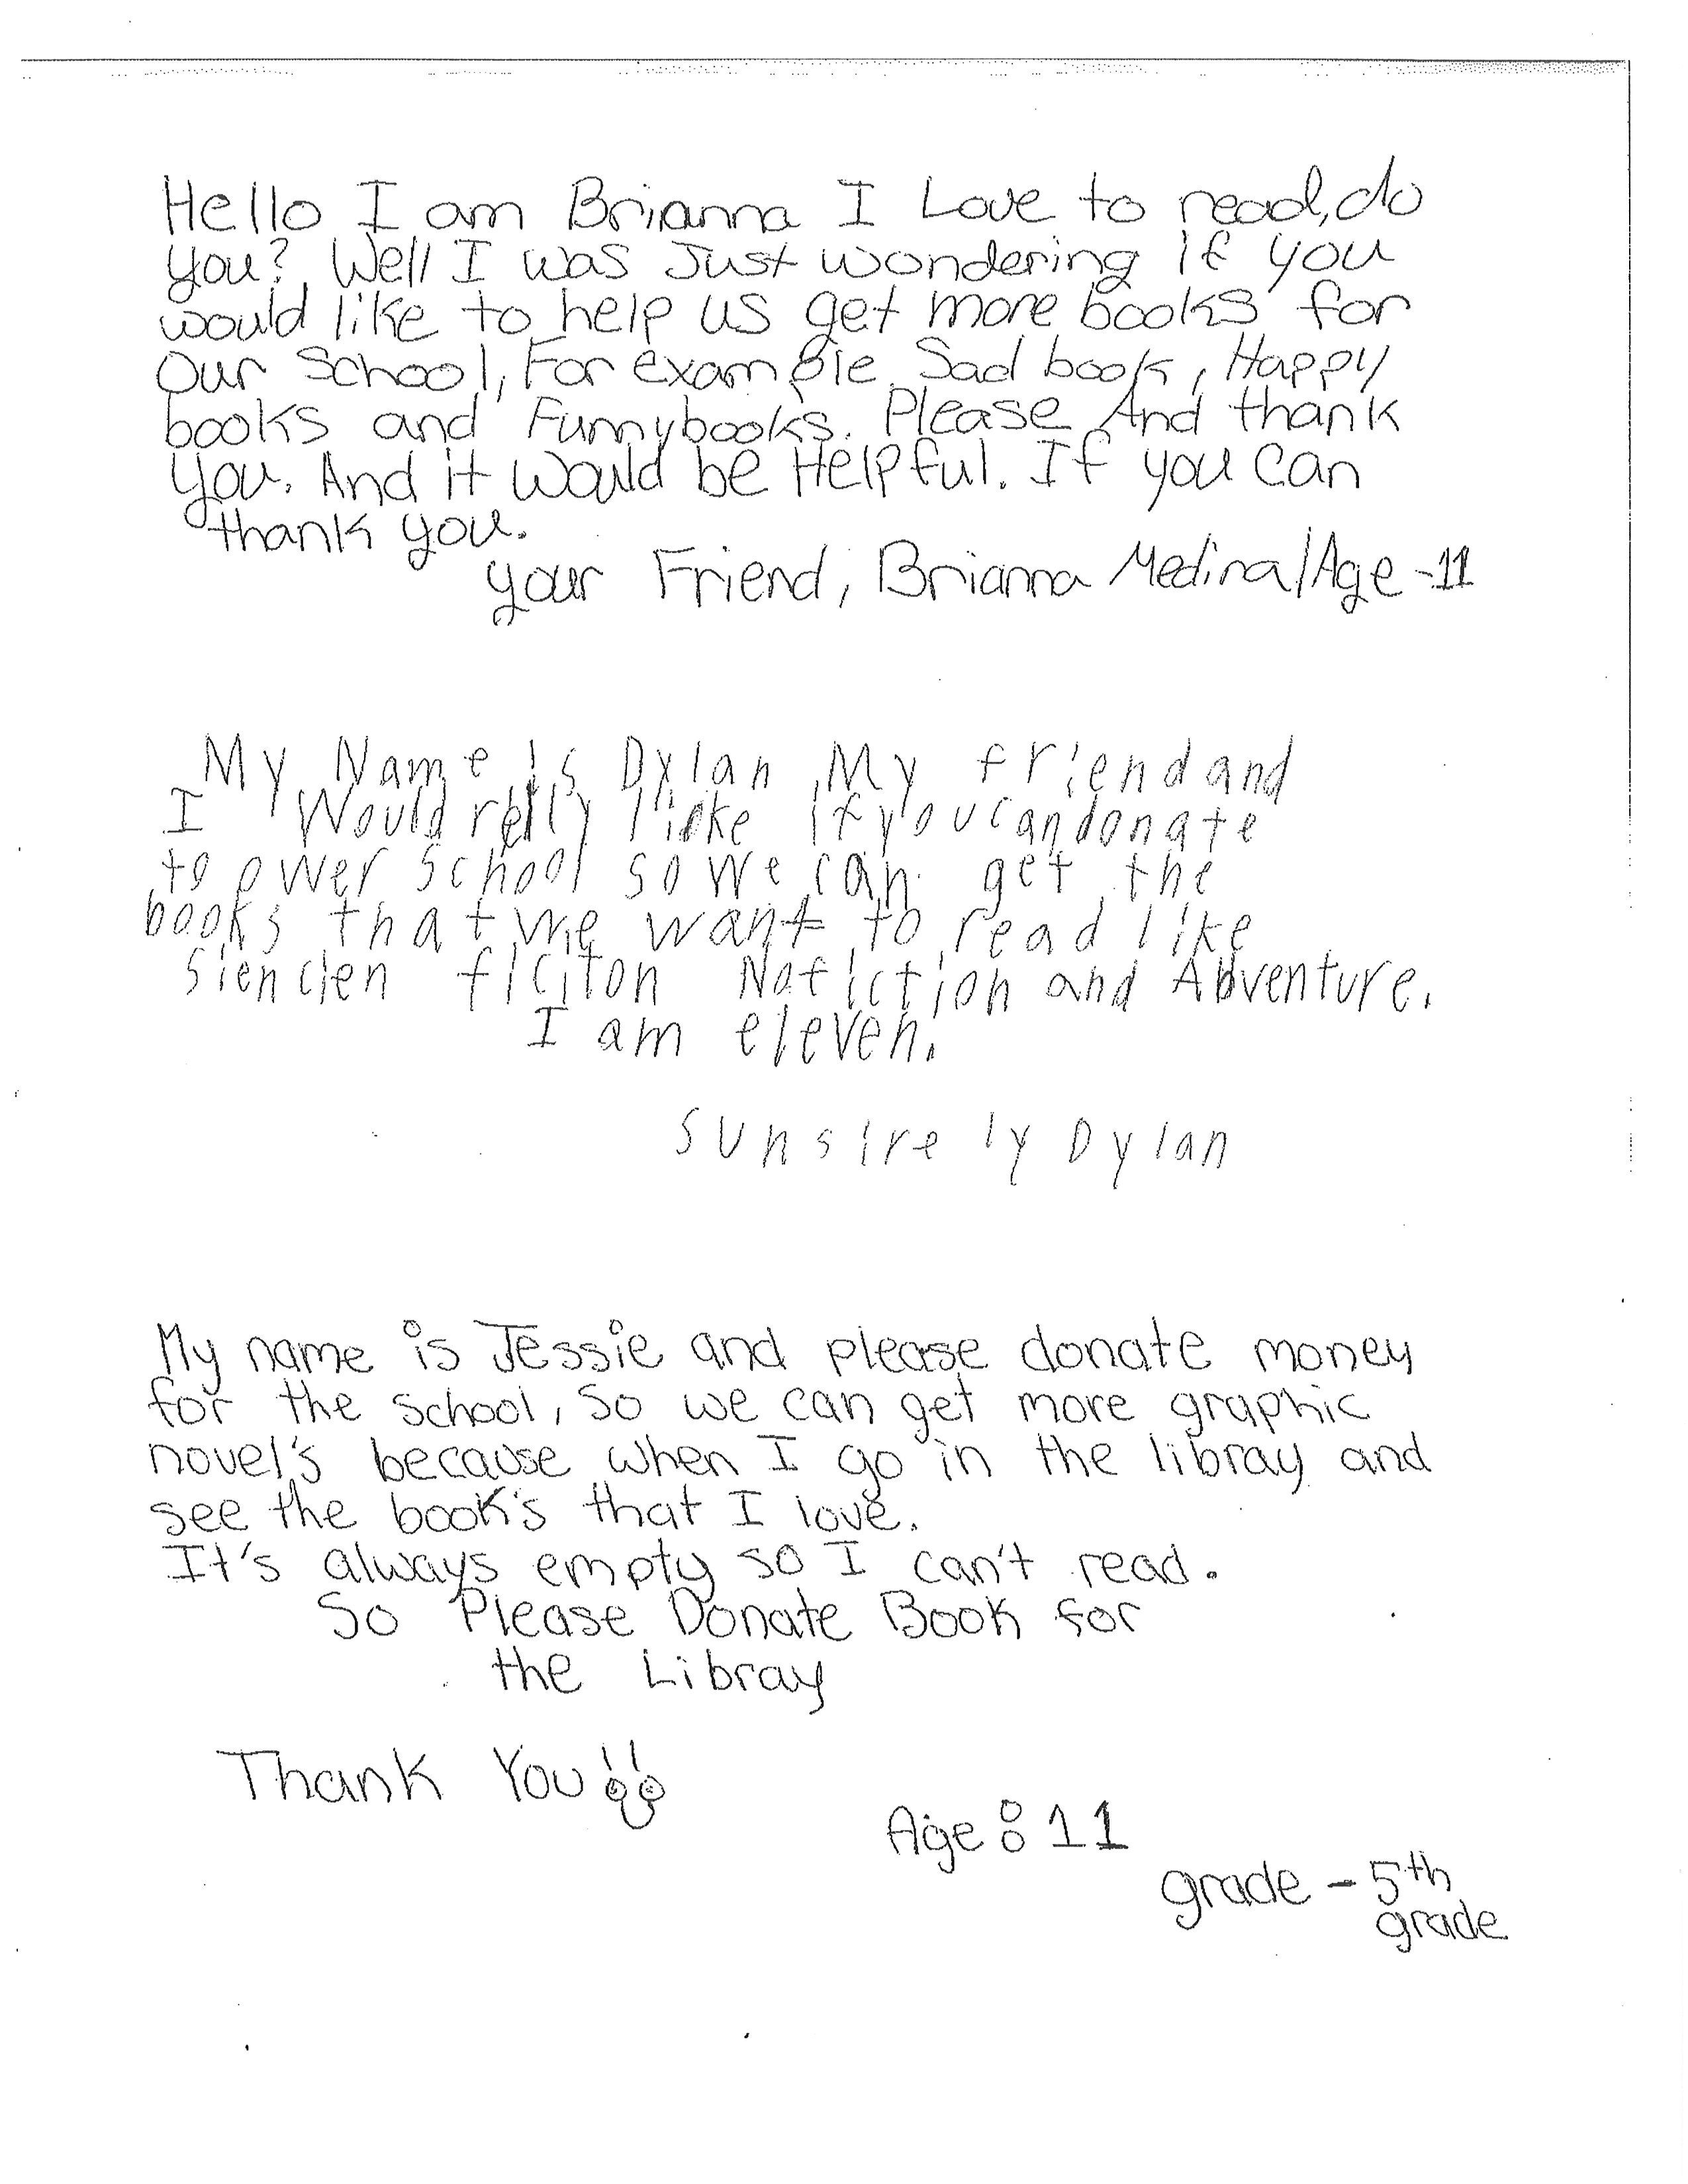 Hello I am Brianna I Love to read, do
you? Well I was Just wondering if you
would like to help us get more books for
Our School, For example Sad book, Happy
books and Funnybooks. Please And thank
you. And it would be Helpful. If you can
thank you.
your Friend, Brianna Medina/Age -11
My Name is Dylan My friend and
I Would relly like if you can donate
to ower school so we can get the
books that we want to read like
Siencien ficiton Nofiction and Adventure.
I am eleven.
Sunsirely Dylan
My name is Jessie and please donate money
for the school, so we can get more graphic
novel's because when I go in the libray and
see the book's that I love.
It's always empty so I can't read.
So Please Donate Book for
the Libray
Thank You!!
Age: 11
grade - 5th
grade